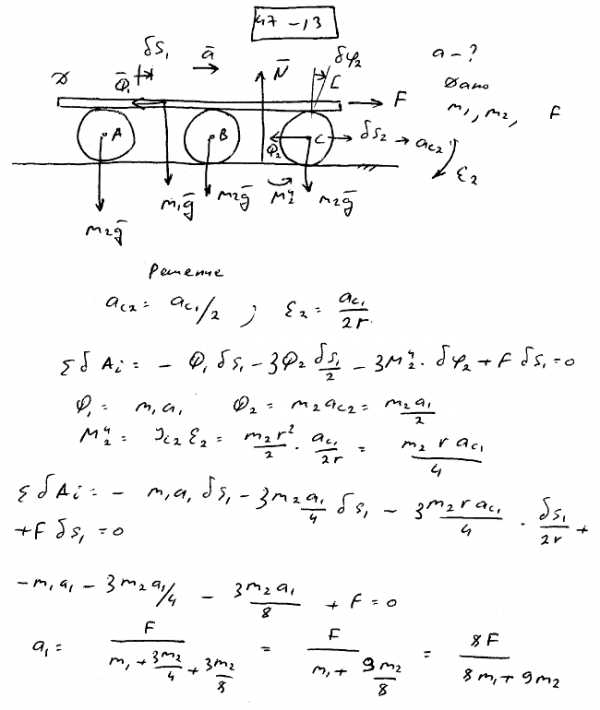 47-13
δS₁ ā N̄ δφ₂ a - ?
D Φ̄₁ F Дано
m₁, m₂, F
A B C δS₂ → a_C2
Φ₂ ε₂
m₂ḡ m₁ḡ m₂ḡ M₂ᶣ m₂ḡ
Решение
a_C2 = a_C1/2 ; ε₂ = a_C1/2r.
ΣδAi = - Φ₁ δS₁ - 3Φ₂ δS₁/2 - 3M₂ᶣ · δφ₂ + F δS₁ = 0
Φ₁ = m₁a₁ Φ₂ = m₂a_C2 = m₂a₁/2
M₂ᶣ = J_C2 ε₂ = m₂r²/2 · a_C1/2r = m₂ r a_C1/4
ΣδAi = - m₁a₁ δS₁ - 3m₂a₁/4 δS₁ - 3m₂ r a_C1/4 · δS₁/2r +
+F δS₁ = 0
-m₁a₁ - 3m₂a₁/4 - 3m₂a₁/8 + F = 0
a₁ = F/(m₁ + 3m₂/4 + 3m₂/8) = F/(m₁ + 9m₂/8) = 8F/(8m₁ + 9m₂)